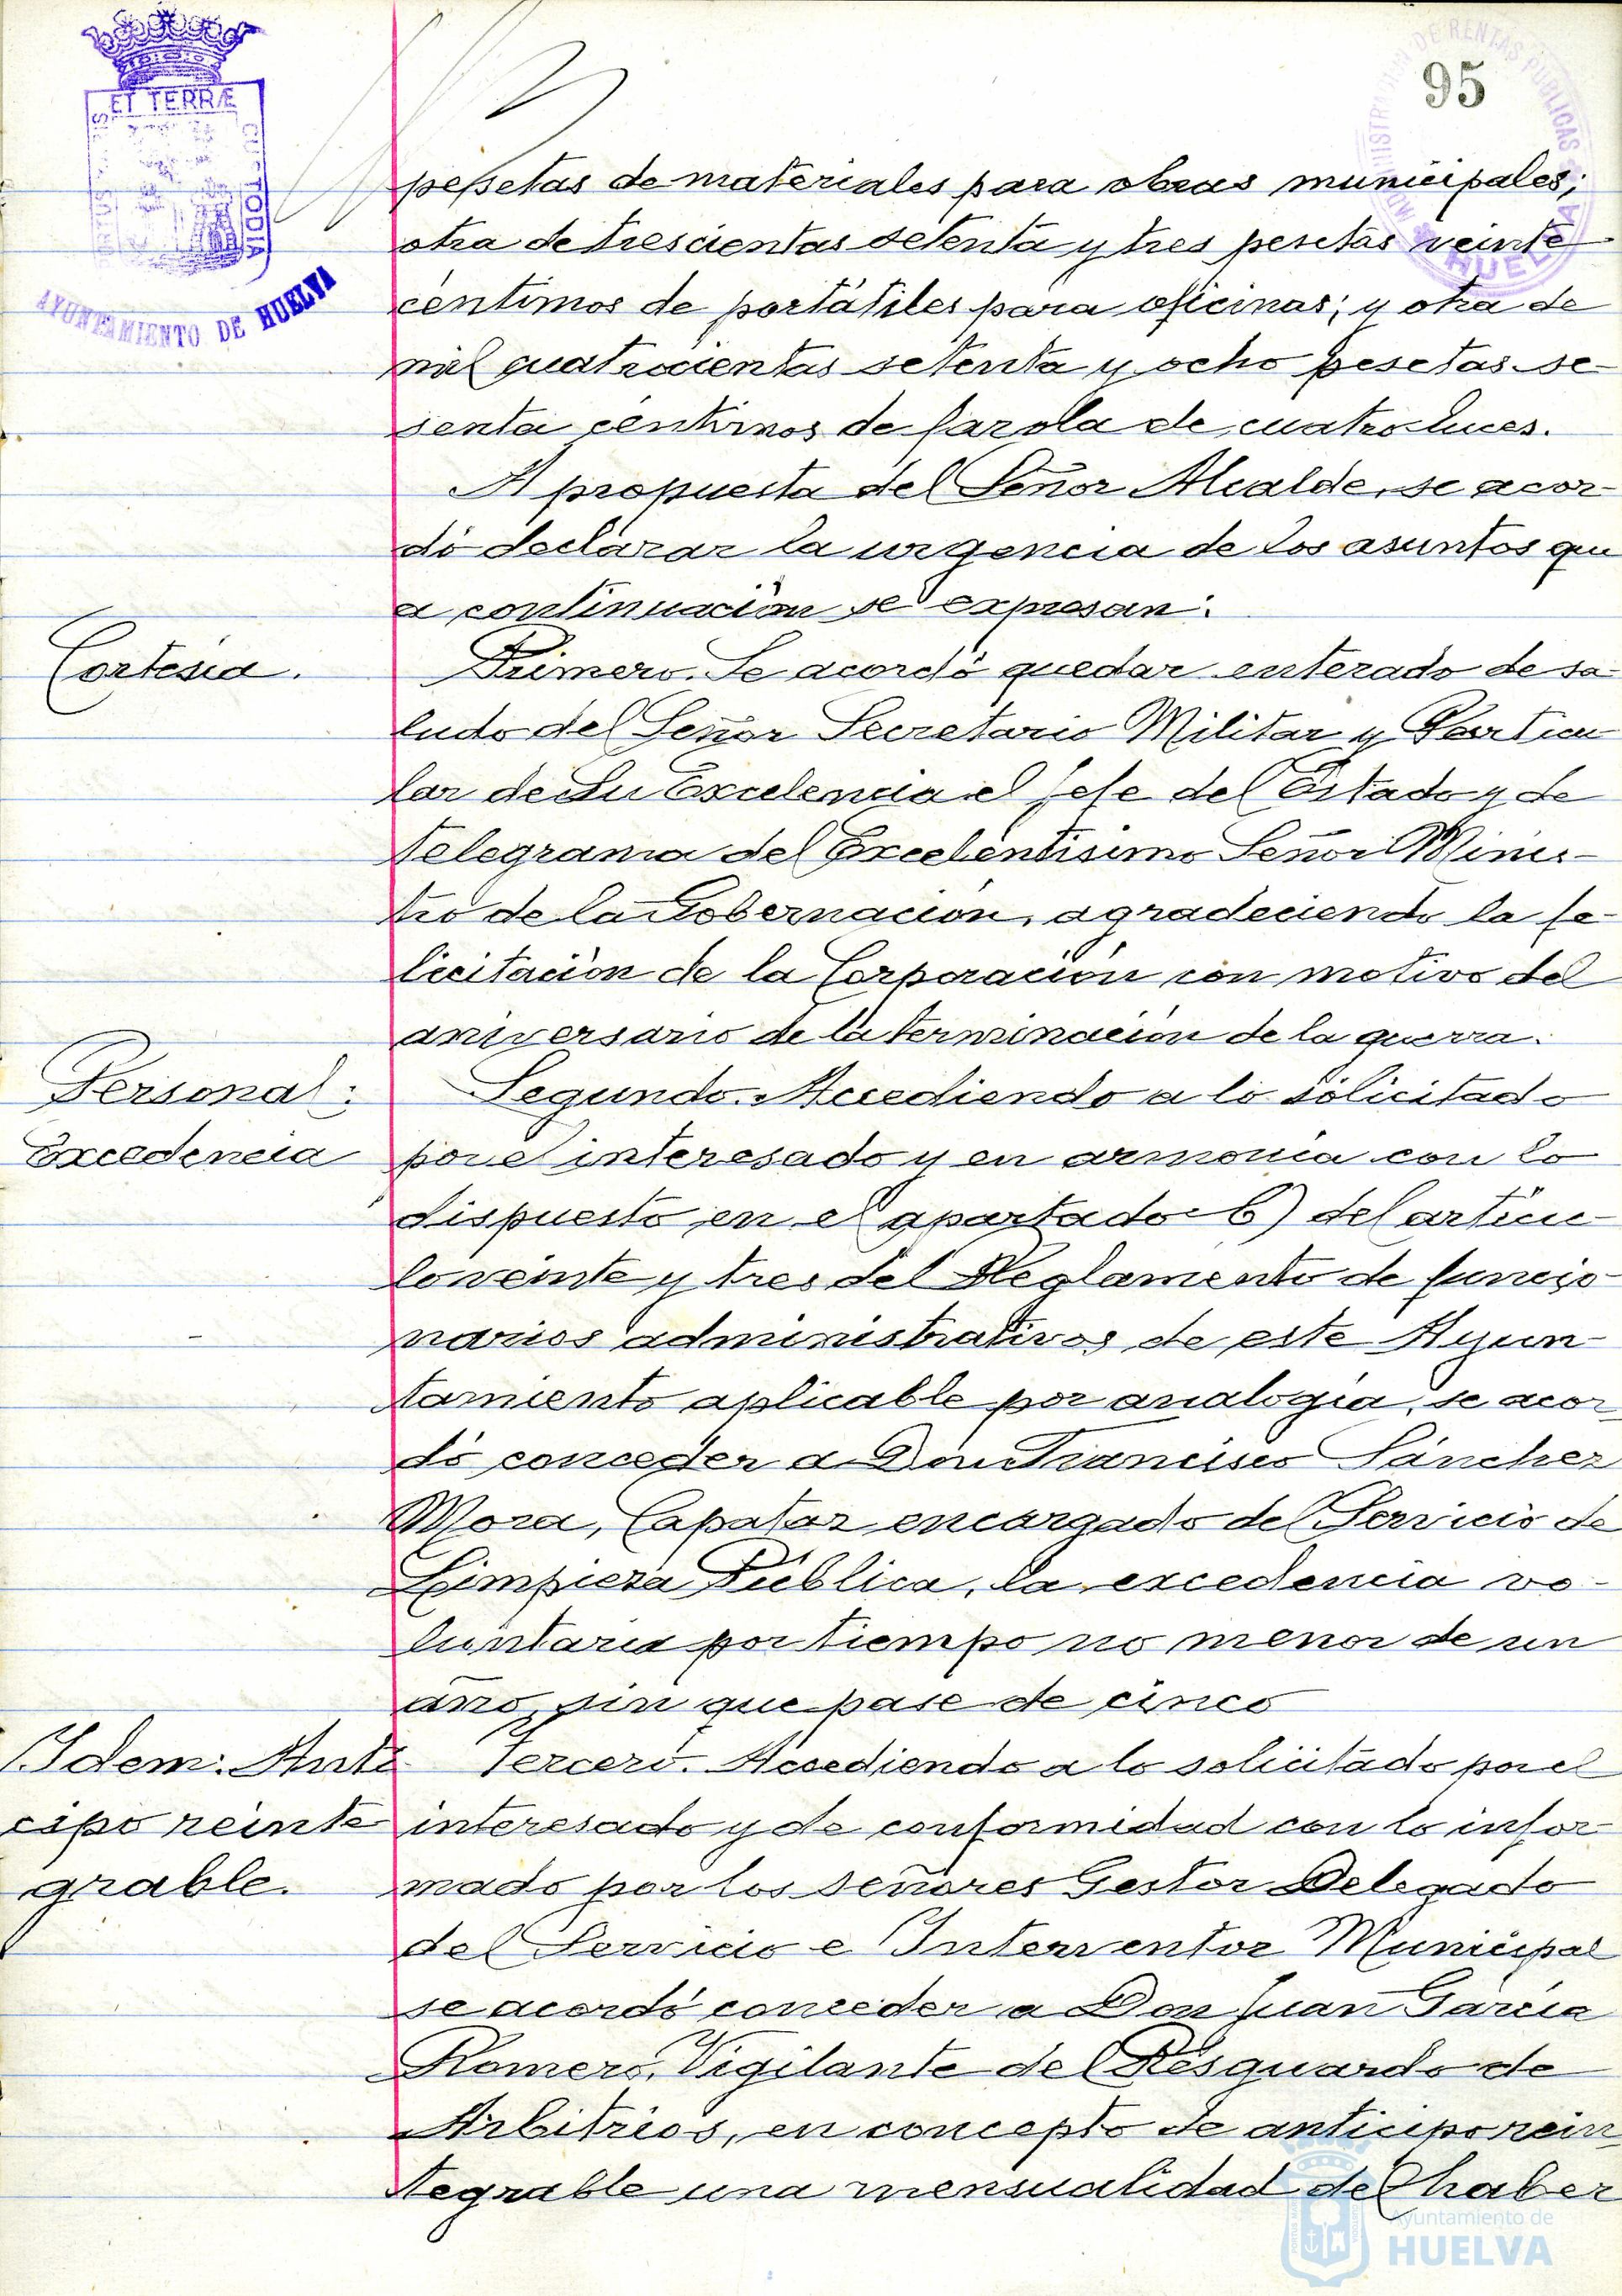 ET TERRÆ
CUSTODIA
AYUNTAMIENTO DE HUELVA
ADMINISTRACION DE RENTAS PUBLICAS
HUELVA
95
pessetas de materiales para obras municipales;
otra de trescientas setenta y tres pesetas veinte
centimos de portátiles para oficinas; y otra de
mil quatrocientas setenta y ocho pesetas se-
senta centimos de farola de cuatro luces.
A propuesta del Señor Alcalde, se acor-
dó declarar la urgencia de los asuntos que
a continuación se expresan:
Cortesia.
Primero. Se acordó quedar enterado de sa-
ludo del Señor Secretario Militar y Particu
lar de Su Excelencia el Jefe del Estado y de
telegrama del Excelentisimo Señor Minis-
tro de la Gobernación, agradeciendo la fe-
licitación de la Corporación con motivo del
aniversario de la terminación de la guerra.
Personal:
Excedencia
Segundo. Accediendo a lo solicitado
por el interesado y en armonia con lo
dispuesto en el apartado b) del artícu-
lo veinte y tres del Reglamento de funcio-
narios administrativos de este Ayun-
tamiento aplicable por analogia, se acor
dó conceder a Don Francisco Sánchez
Mora, Capataz encargado del Servicio de
Limpieza Pública, la excedencia vo-
luntaria por tiempo no menor de un
año, sin que pase de cinco
Idem: Anti
cipo reinte
grable.
Tercero. Accediendo a lo solicitado por el
interesado y de conformidad con lo infor-
mado por los señores Gestor Delegado
del Servicio e Interventor Municipal
se acordó conceder a Don Juan García
Romero, Vigilante del Resguardo de
Arbitrios, en concepto de anticipo rein
tegrable una mensualidad del haber
Ayuntamiento de
HUELVA